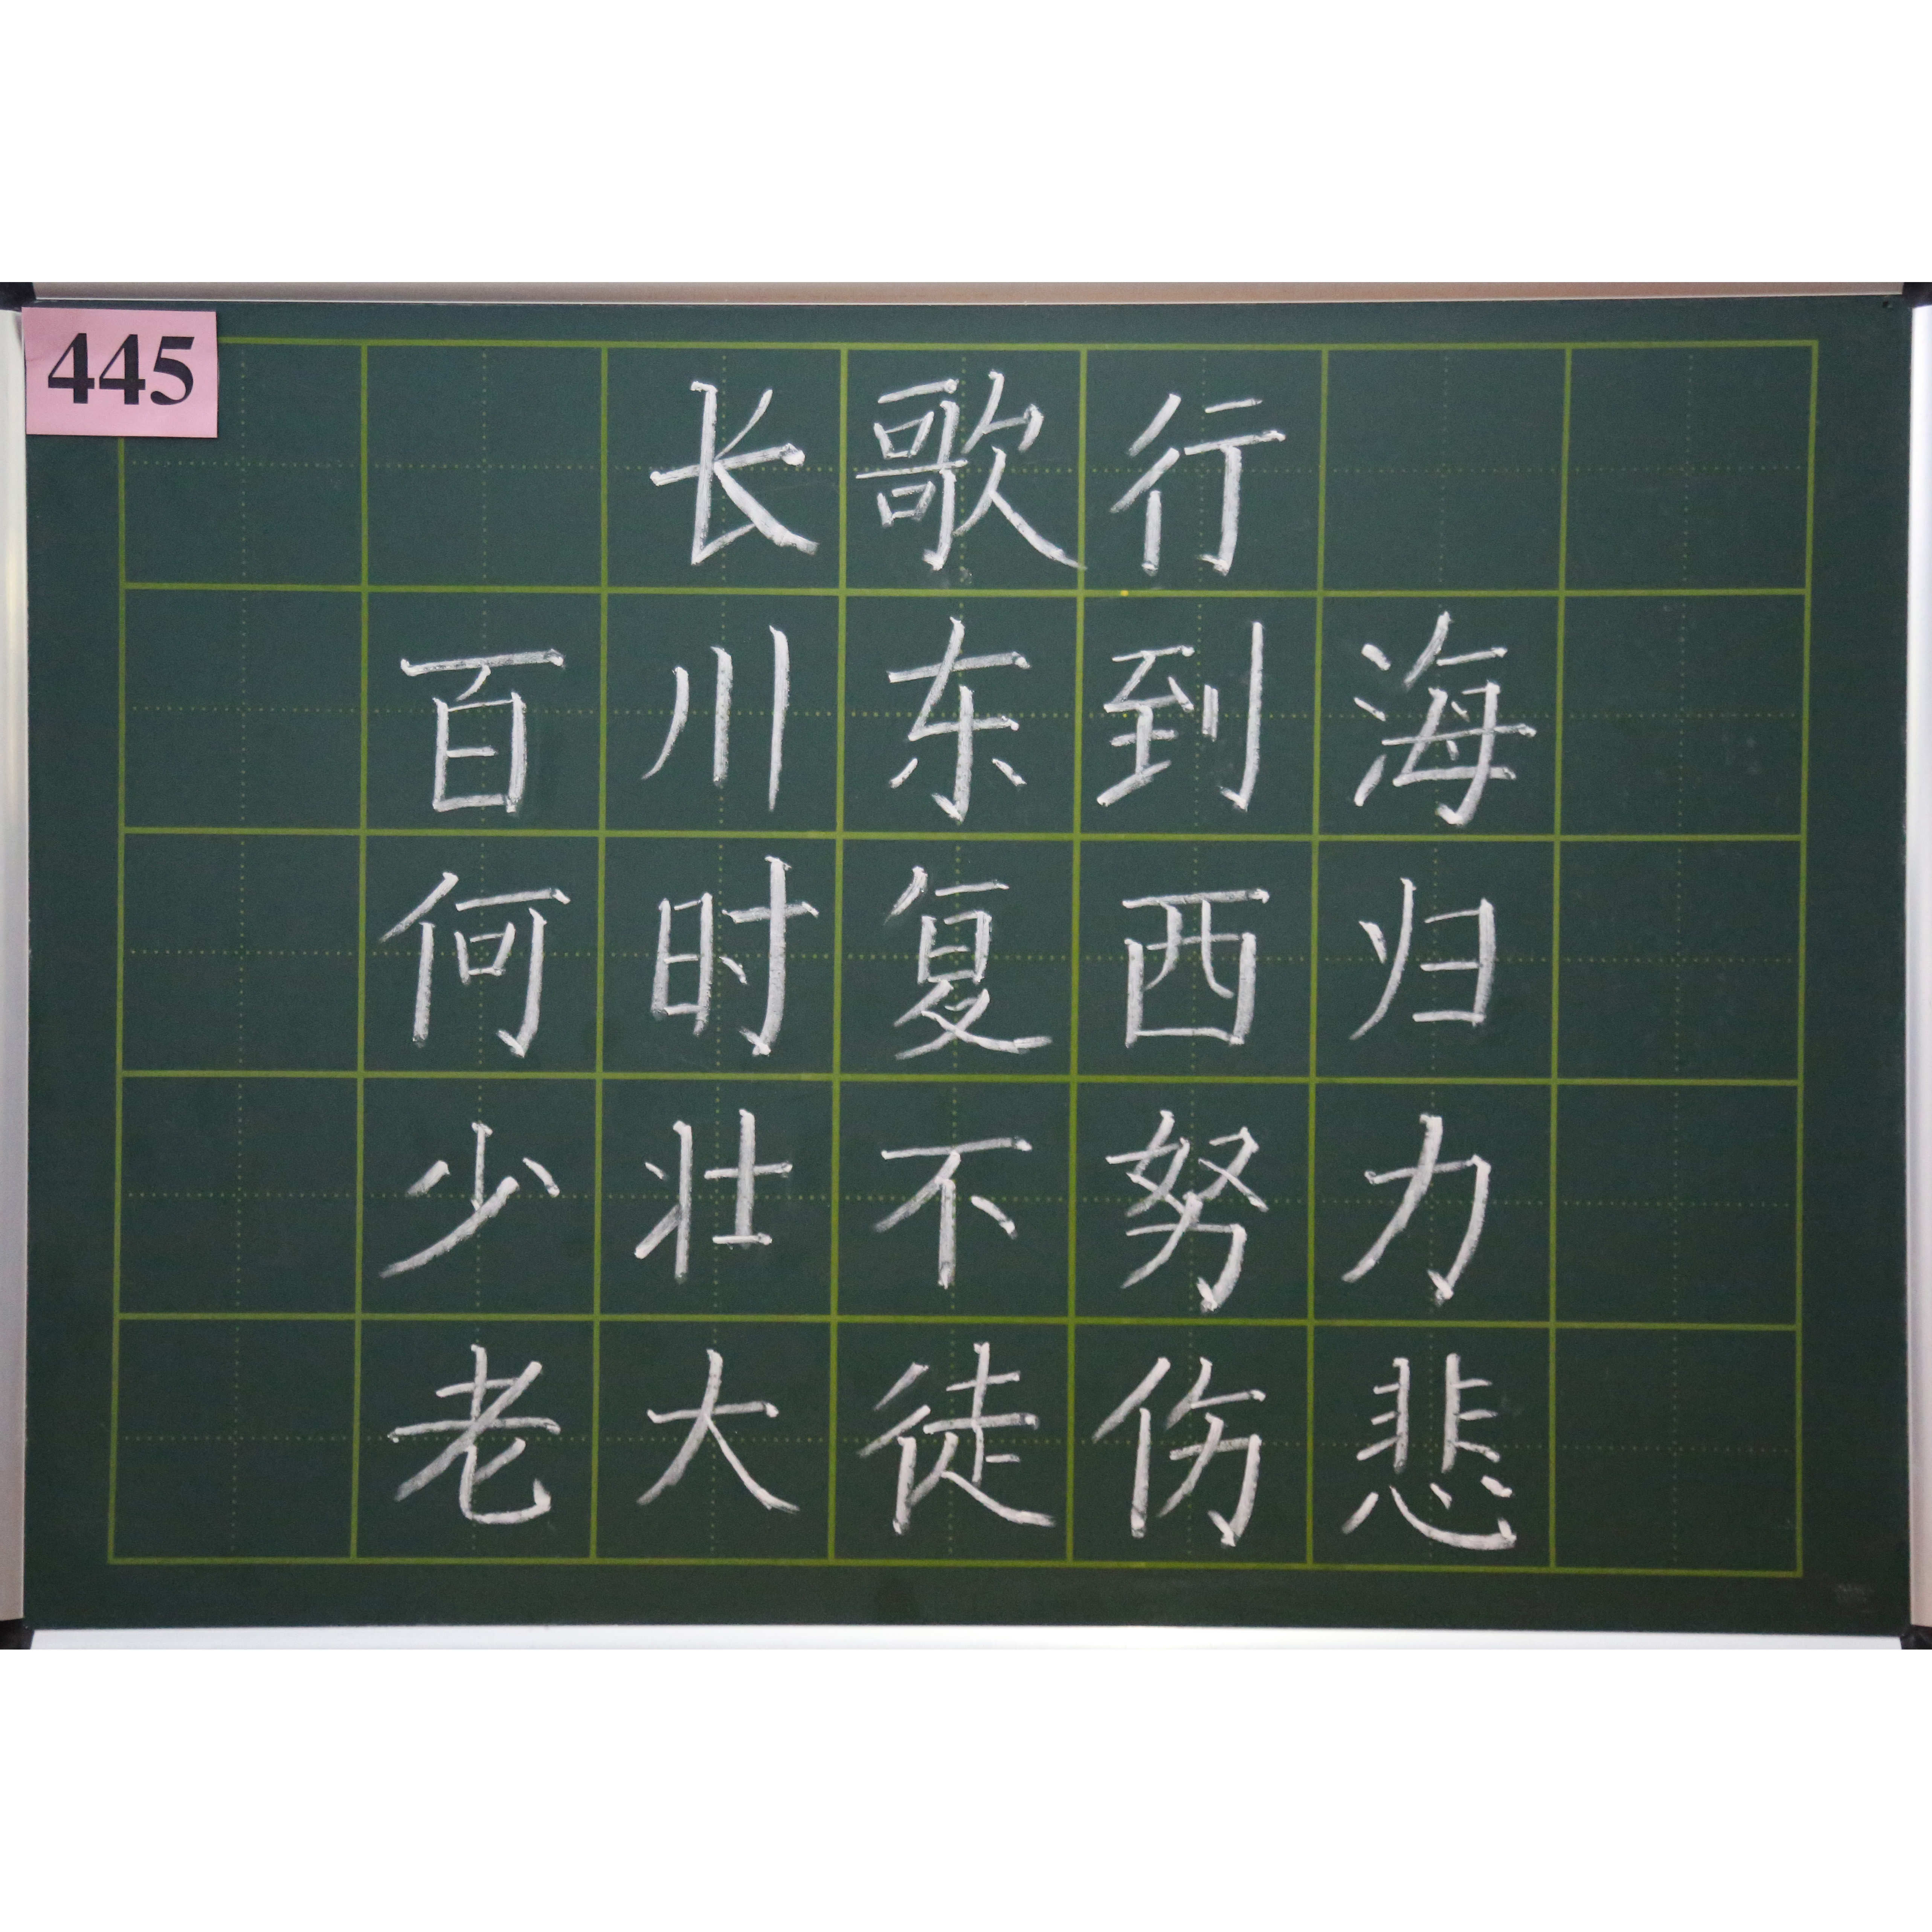 445
长歌行
百川东到海
何时复西归
少壮不努力
老大徒伤悲